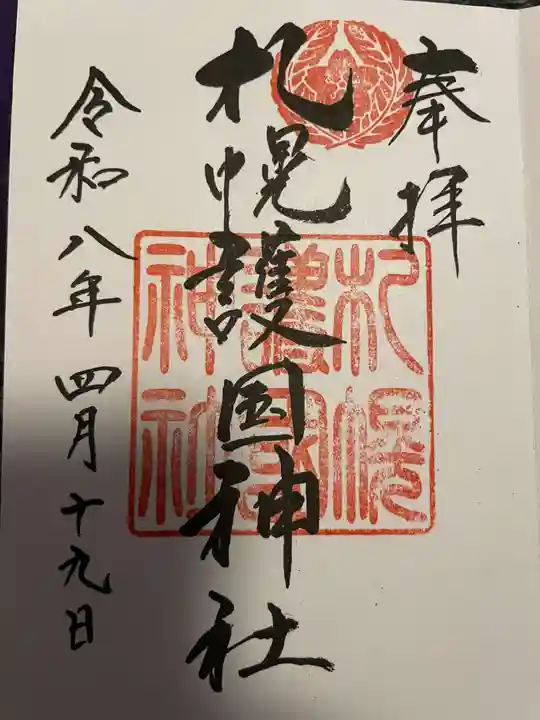 奉拝
札幌護国神社
札幌
護國
神社
令和八年四月十九日